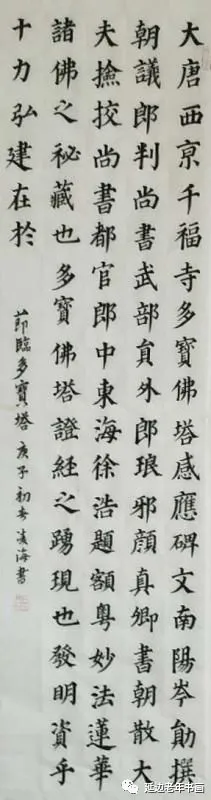 大唐西京千福寺多寶佛塔感應碑文南陽岑勛撰
朝議郎判尚書武部員外郎琅邪顏真卿書朝散大
夫撿挍尚書都官郎中東海徐浩題額粵妙法蓮華
諸佛之秘藏也多寶佛塔證經之踴現也發明資乎
十力弘建在於
節臨多寶塔 庚子初春 海書
延边老年书画